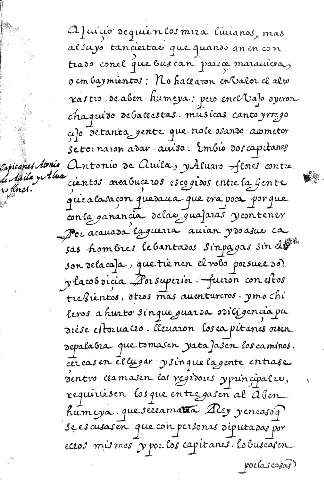 A juicio de quien los mira livianos, mas
al suyo tan ciertas que quando an encon
trado con el que buscan pareçe maravilla,
o embaymientos; No hallaron en Valor el alto
rastro de aben humeya; pero en el Vajo oyeron
chasquido de ballestas. musicas canto y rrego
çijo de tanta gente que no le osando acometer
se tornaron a dar aviso. Imbio dos capitanes
Antonio de Avila, y Alvaro flores con tre
cientos arcabuceros escogidos entre la gente
que a la saçon quedava que era poca porque
con la ganancia de las guajaras y con tener
Por acavada la guerra avian ydo a sus ca
sas hombres levantados sin pagas sin el
son de la caja, que tienen el robo por sueldo
y la cobdicia Por superior. fueron con estos
trezientos, otros mas aventureros. y mo chi
leros a hurto sin que guarda o diligençia pu
diese estorvallo. llevaron los capitanes orden
de palabra que tomasen y atajasen los caminos.
cercasen el lugar y sin que la gente entrase
dentro llamasen los regidores y principales,
requiriesen los que entregasen al Aben
humeya. que se llamava Rey y en caso q
se escusasen que con personas diputadas por
ellos mismos y por los capitanes. lo buscasen
por las casas
Capitanes Antonio
de Avila y Alva
ro flores.